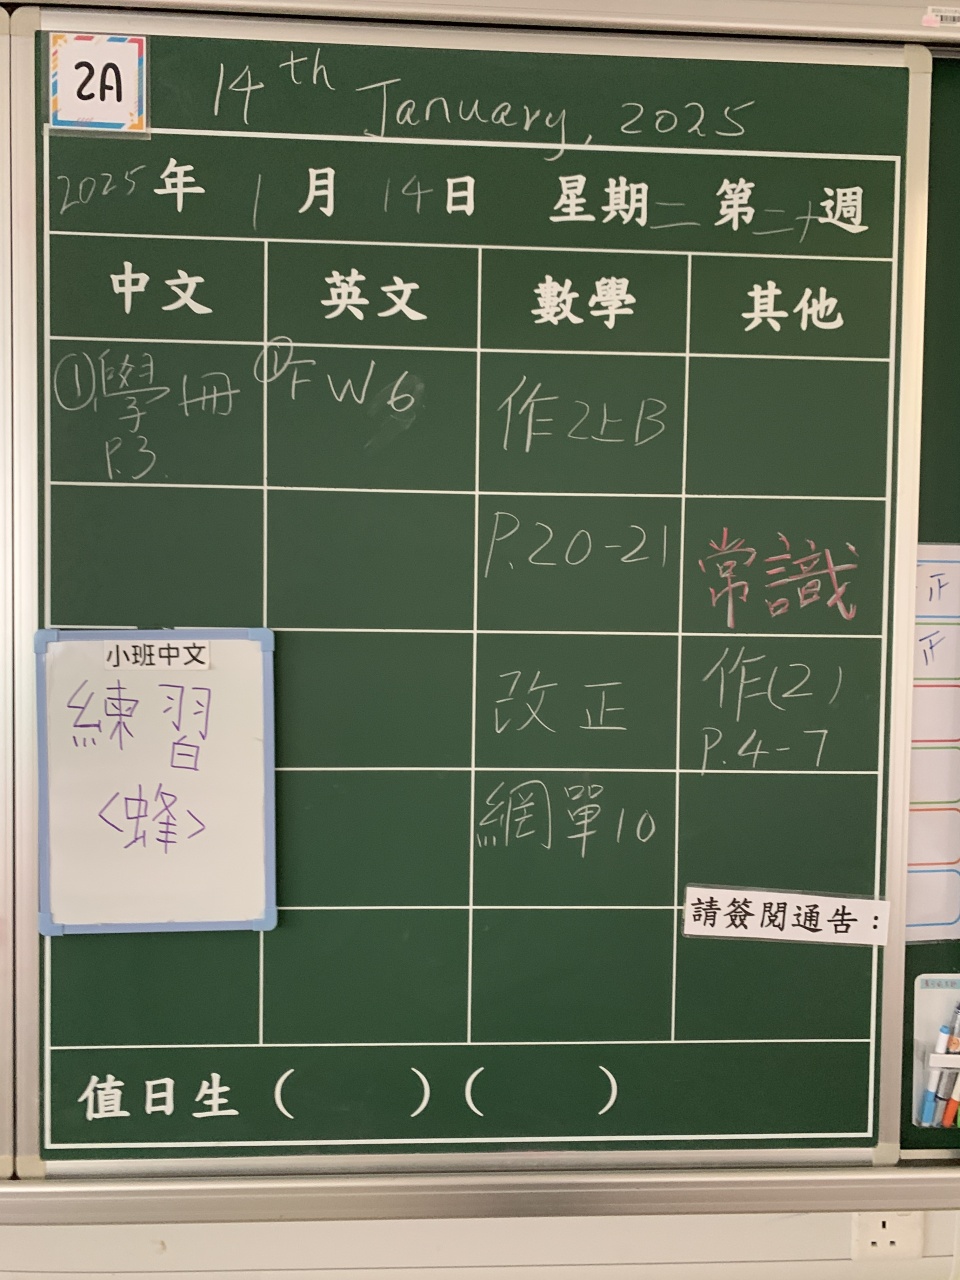 2A
14th January, 2025
2025年 1月 14日 星期二 第二十週
中文 英文 數學 其他
①學冊
P.3.
①FW6
作2上B
P.20-21
改正
網單10
常識
作(2)
P.4-7
小班中文
練習
<蜂>
請簽閱通告：
值日生（ ）（ ）
正
正